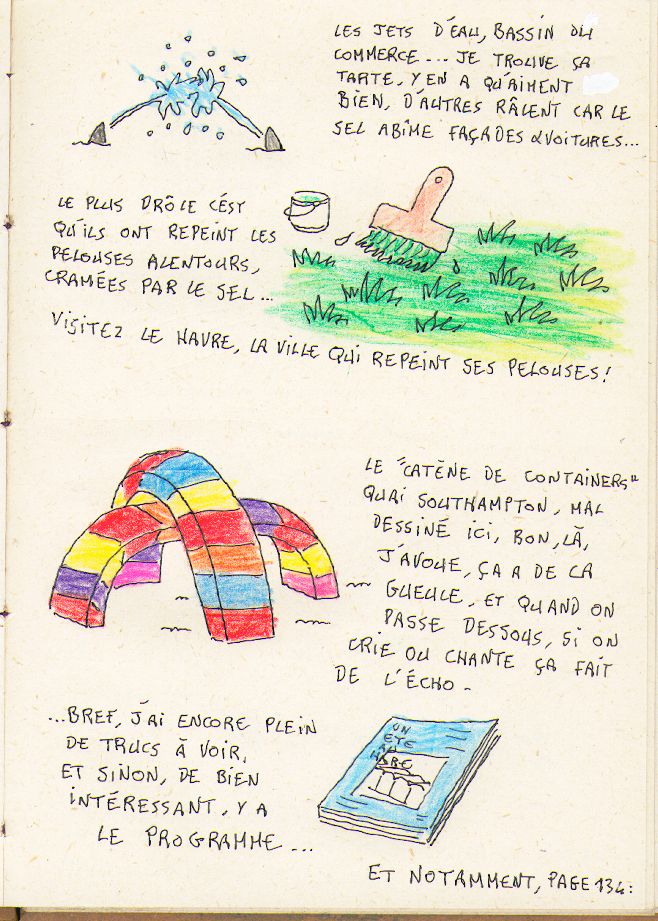 LES JETS D'EAU, BASSIN DU
COMMERCE... JE TROUVE ÇA
TARTE, Y EN A QU'AIMENT
BIEN, D'AUTRES RÂLENT CAR LE
SEL ABÎME FAÇADES & VOITURES...
LE PLUS DRÔLE C'EST
QU'ILS ONT REPEINT LES
PELOUSES ALENTOURS,
CRAMÉES PAR LE SEL...
VISITEZ LE HAVRE, LA VILLE QUI REPEINT SES PELOUSES!
LE "CATÈNE DE CONTAINERS"
QUAI SOUTHAMPTON, MAL
DESSINÉ ICI, BON, LÀ,
J'AVOUE, ÇA A DE LA
GUEULE, ET QUAND ON
PASSE DESSOUS, SI ON
CRIE OU CHANTE ÇA FAIT
DE L'ÉCHO.
...BREF, J'AI ENCORE PLEIN
DE TRUCS À VOIR,
ET SINON, DE BIEN
INTÉRESSANT, Y A
LE PROGRAMME...
UN
ETE
ET NOTAMMENT, PAGE 134: